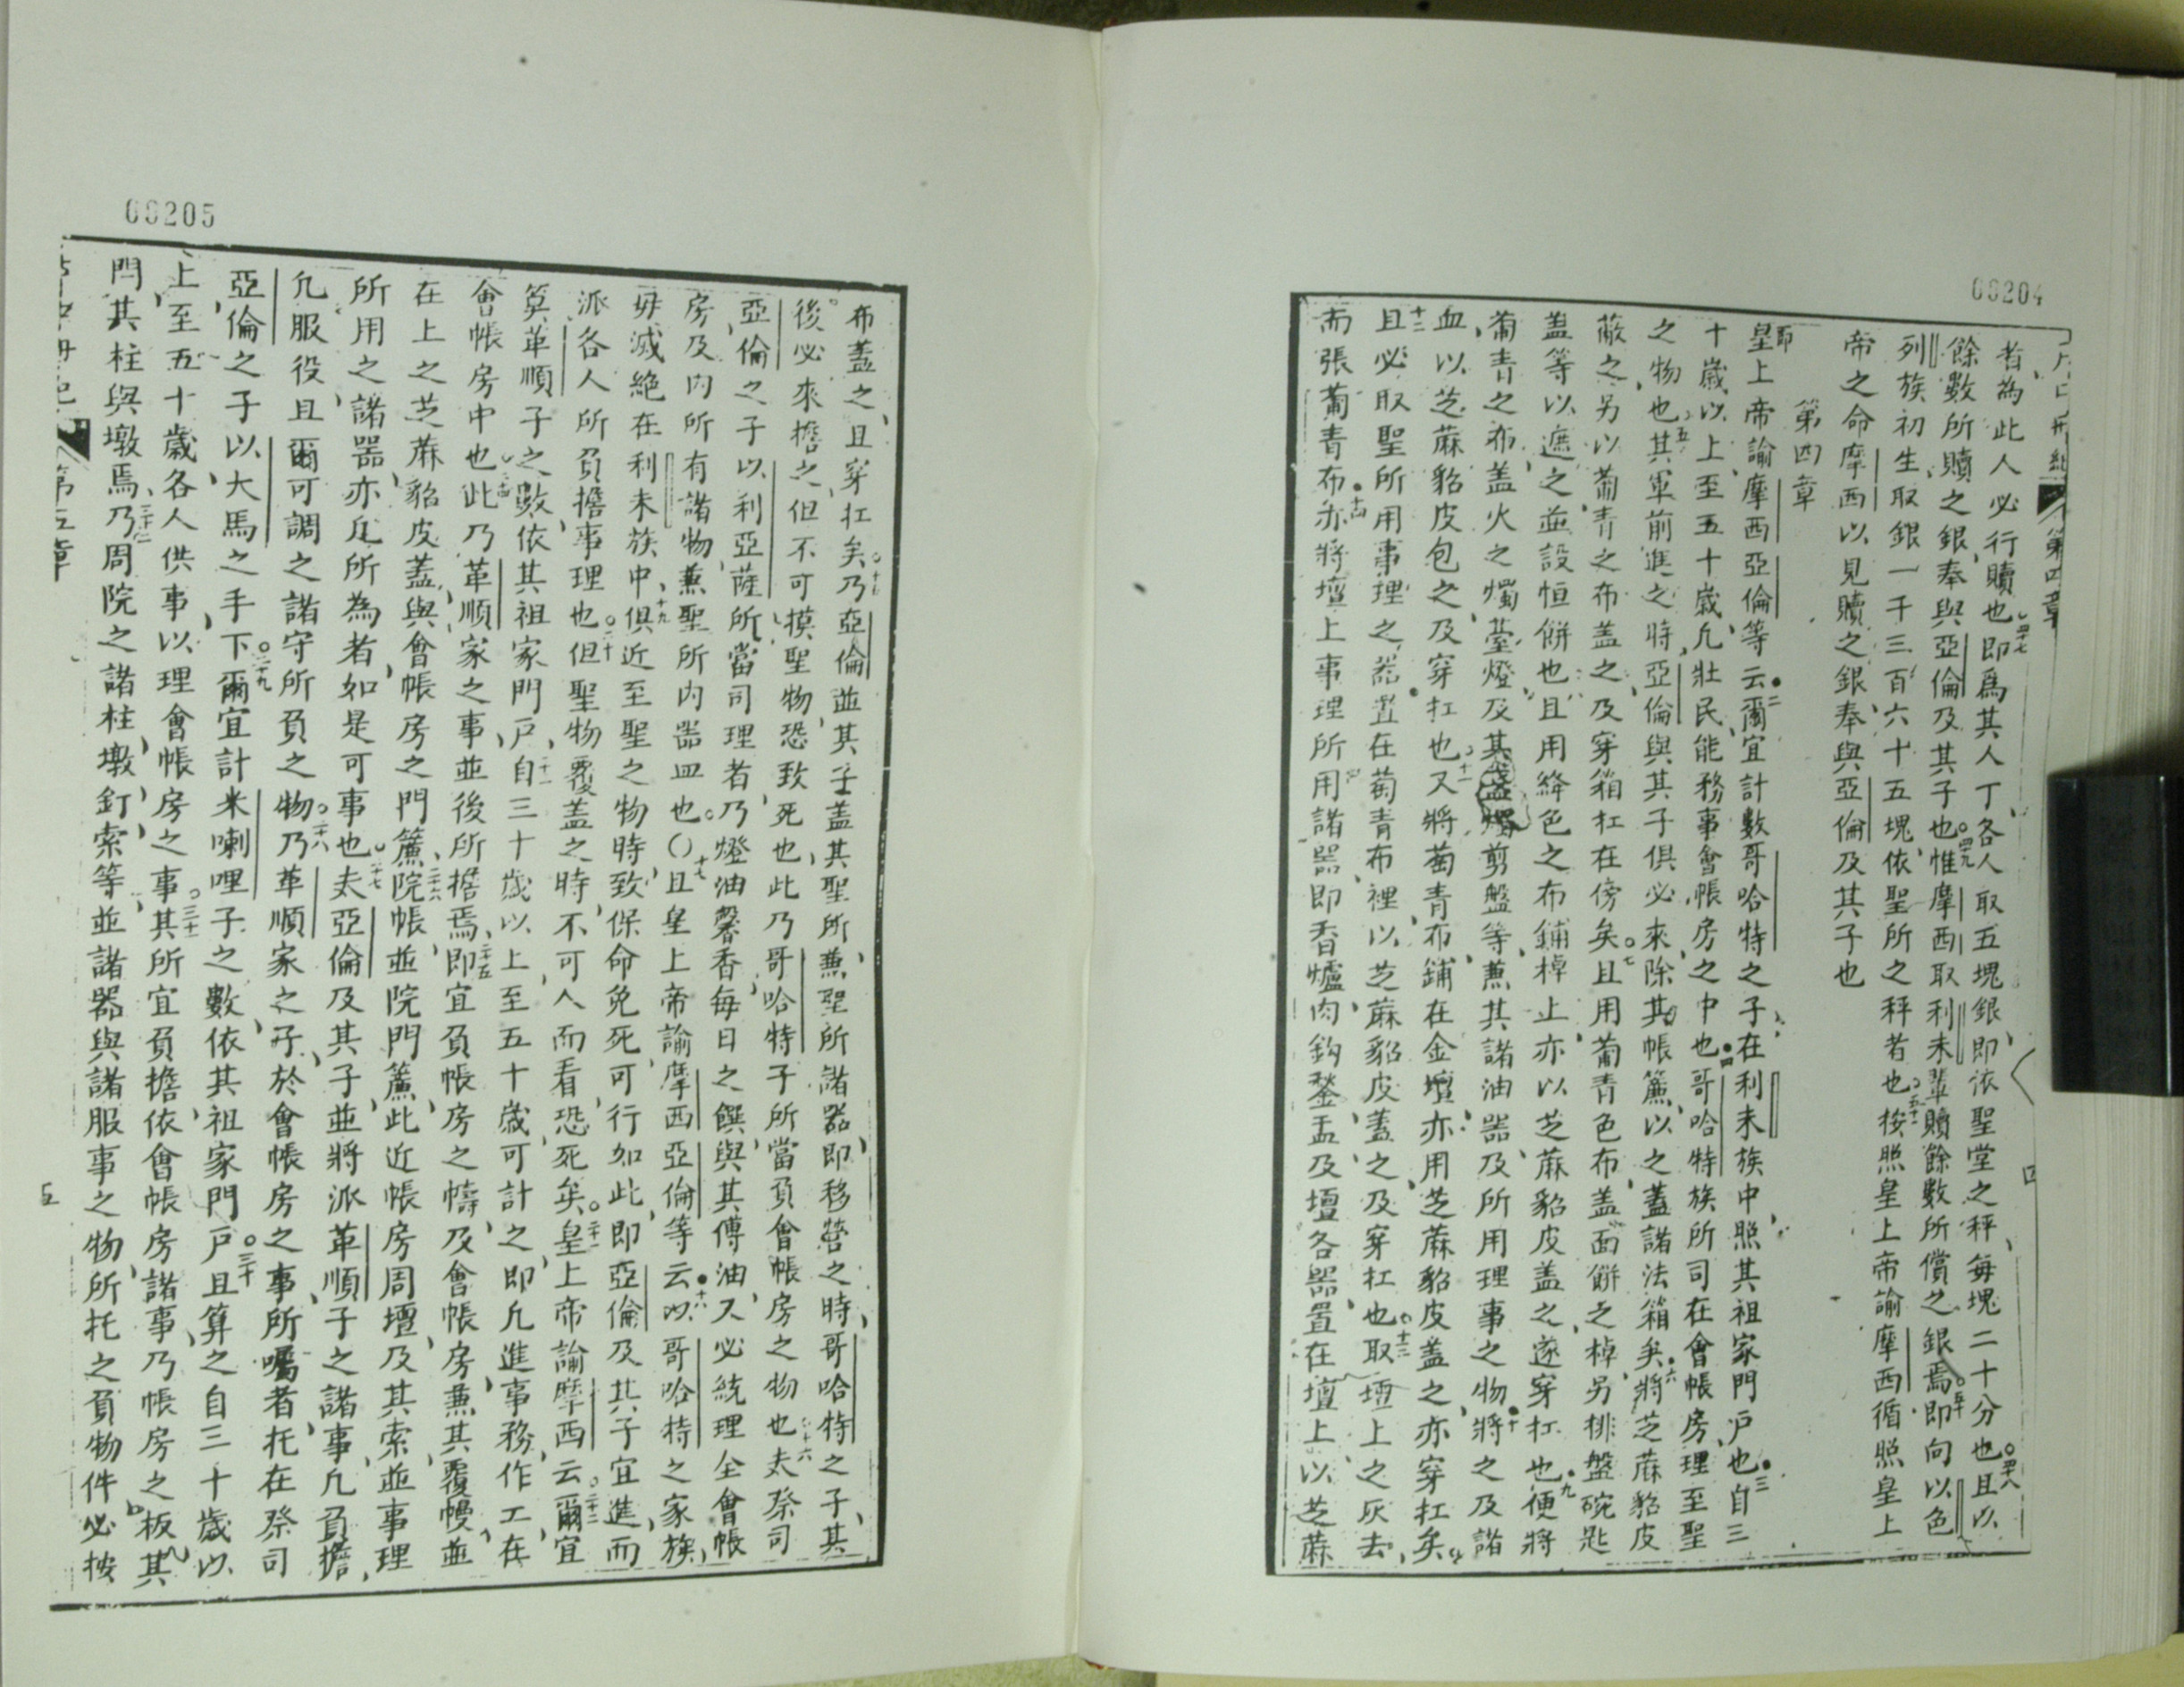 69204
者為此人必行贖也四七即爲其人丁各人取五塊銀即依聖堂之秤每塊二十分也四八且以
餘數所贖之銀奉與亞倫及其子也四九惟摩西取利未輩贖餘數所償之銀焉五十即向以色
列族初生取銀一千三百六十五塊依聖所之秤者也五十一按照皇上帝諭摩西循照皇上
帝之命摩西以見贖之銀奉與亞倫及其子也
第四章
即皇上帝諭摩西亞倫等云二爾宜計數哥哈特之子在利未族中照其祖家門戶也三自三
十歲以上至五十歲凡壯民能務事會帳房之中也四哥哈特族所司在會帳房理至聖
之物也五其軍前進之時亞倫與其子俱必來除其帳簾以之蓋諸法箱矣六將芝蔴貂皮
蔽之另以葡青之布盖之及穿箱杠在傍矣七且用葡青色布盖面餅之棹另排盤碗匙
盖等以遮之並設恒餅也且用絳色之布鋪棹上亦以芝蔴貂皮盖之遂穿杠也九便將
葡青之布盖火之燭臺燈及其剪盤等兼其諸油器及所用理事之物十將之及諸
血以芝蔴貂皮包之及穿杠也十一又將萄青布鋪在金壇亦用芝蔴貂皮盖之亦穿扛矣
十二且必取聖所用事理之器置在萄青布裡以芝蔴貂皮蓋之及穿扛也十三取壇上之灰去
而張葡青布十四亦將壇上事理所用諸器即香爐肉鈎鍫盂及壇各器置在壇上以芝蔴
第四章
四
69205
布蓋之且穿扛矣十五乃亞倫並其子盖其聖所兼聖所諸器即移營之時哥哈特之子其
後必來擔之但不可摸聖物恐致死也此乃哥哈特子所當負會帳房之物也十六夫祭司
亞倫之子以利亞薩所當司理者乃燈油馨香每日之饌與其傅油又必統理全會帳
房及內所有諸物兼聖所內器皿也〇十七且皇上帝諭摩西亞倫等云十八以哥哈特之家族
毋滅絕在利未族中十九俱近至聖之物時致保命免死可行如此即亞倫及其子宜進而
派各人所負擔事理也二十但聖物覆盖之時不可人而看恐死矣二十一皇上帝諭摩西云二十二爾宜
筭革順子之數依其祖家門戶自三十歲以上至五十歲可計之即凡進事務作工在
會帳房中也二十四此乃革順家之事並後所擔焉二十五即宜負帳房之幬及會帳房兼其覆幔並
在上之芝蔴貂皮蓋與會帳房之門簾二十六院帳並院門簾此近帳房周壇及其索並事理
所用之諸器亦凡所為者如是可事也二十七夫亞倫及其子並將派革順子之諸事凡負擔
凡服役且爾可調之諸守所負之物二十八乃革順家之子於會帳房之事所囑者托在祭司
亞倫之子以大馬之手下二十九爾宜計米喇哩子之數依其祖家門戶三十且算之自三十歲以
上至五十歲各人供事以理會帳房之事三十一其所宜負擔依會帳房諸事乃帳房之板其
閂其柱與墩焉三十二乃周院之諸柱墩釘索等並諸器與諸服事之物所托之負物件必按
第五章
五